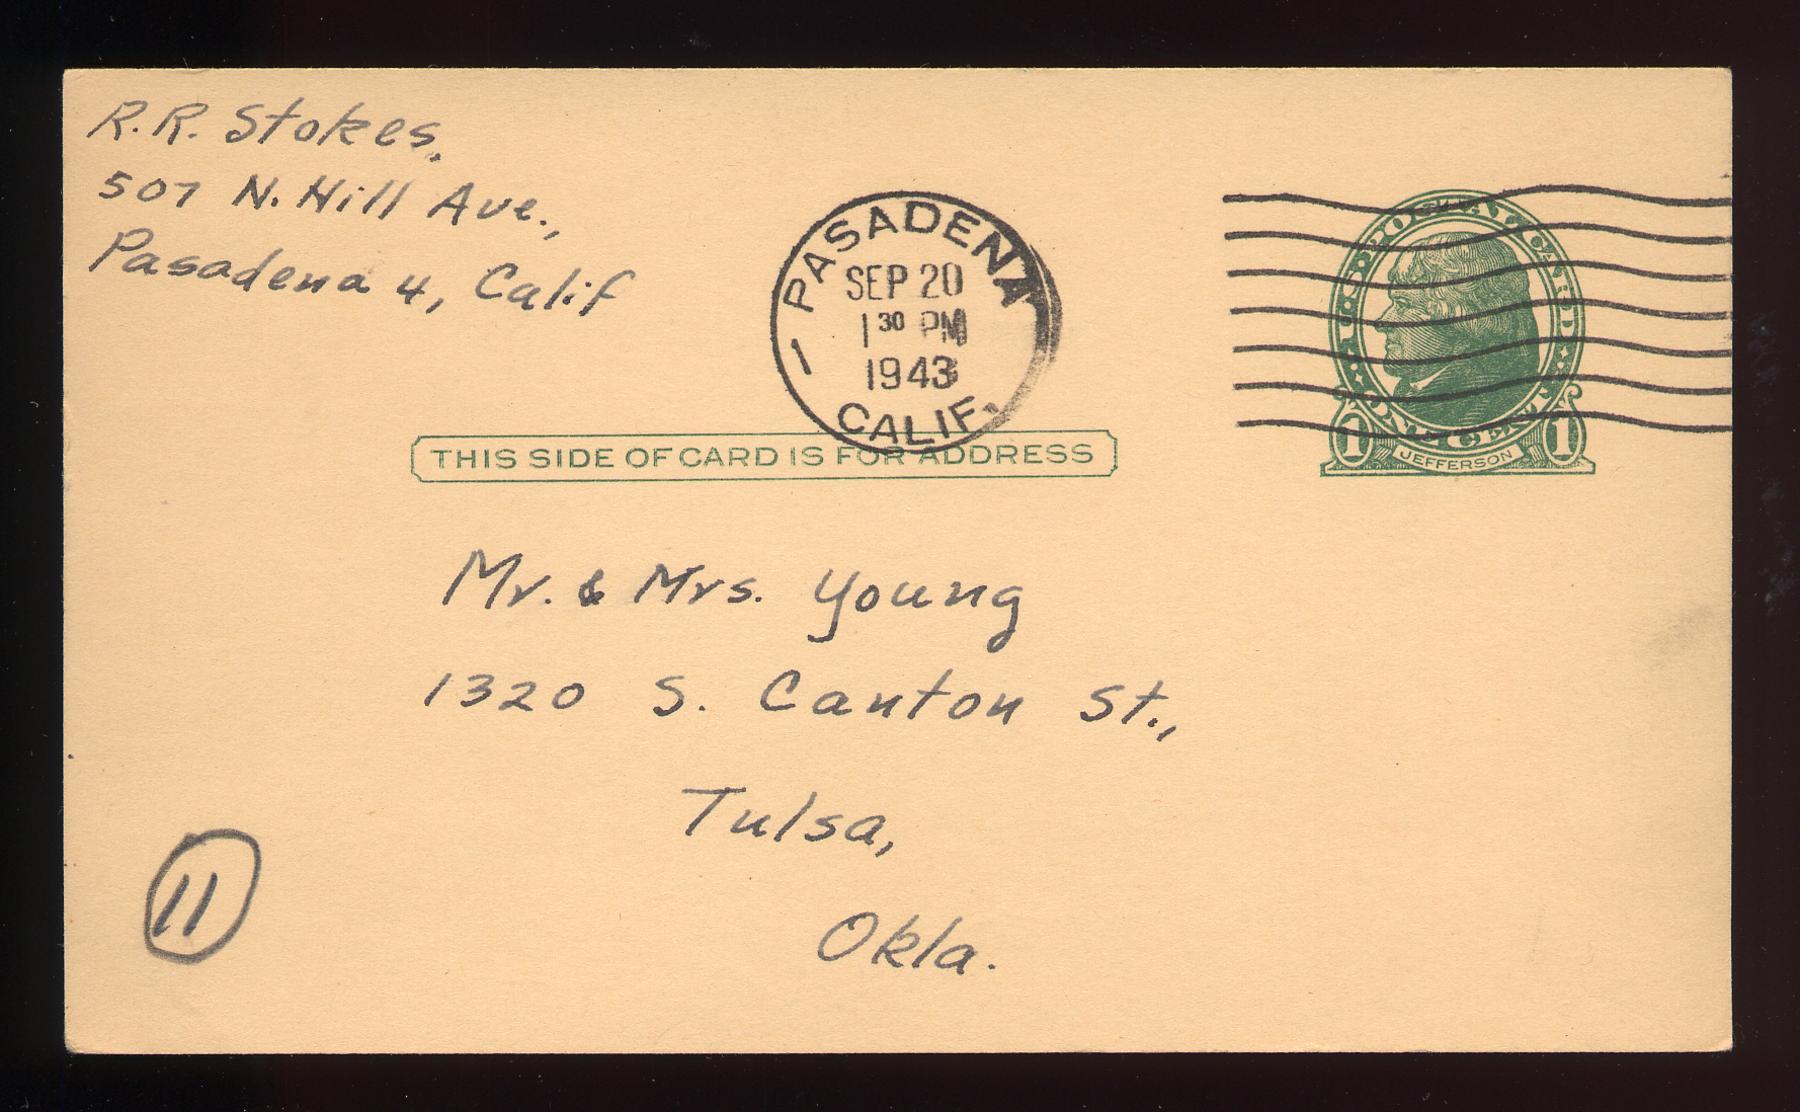 R.R. Stokes,
507 N. Hill Ave.,
Pasadena 4, Calif
PASADENA
SEP 20
1 30 PM
1943
1
CALIF.
U.S. POSTAL CARD
ONE CENT
1 JEFFERSON 1
THIS SIDE OF CARD IS FOR ADDRESS
Mr. & Mrs. Young
1320 S. Canton St.,
Tulsa,
Okla.
11